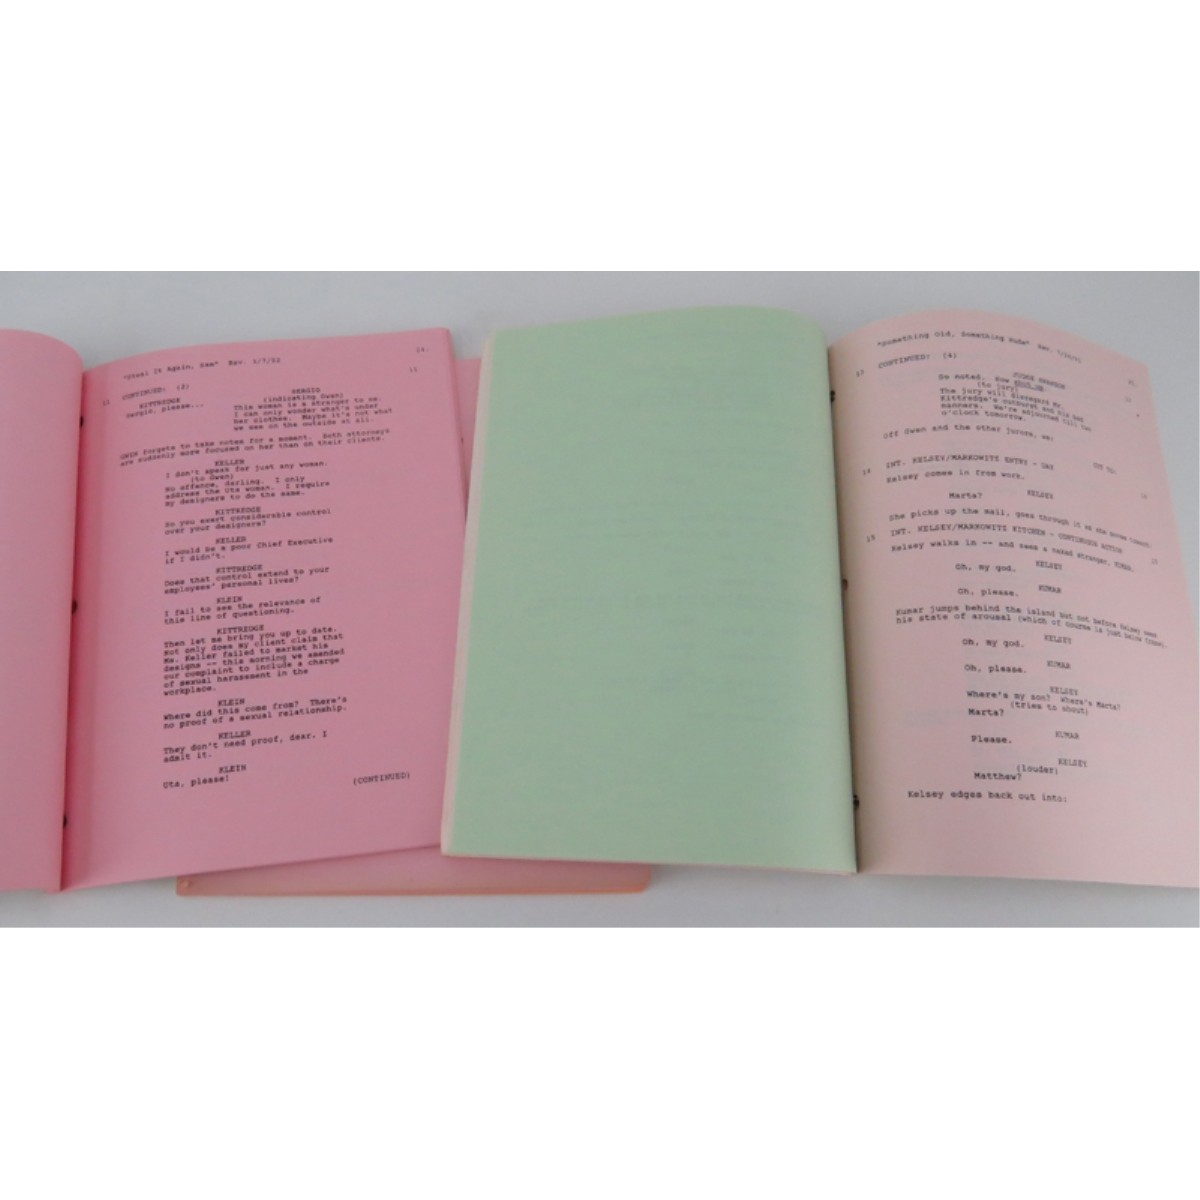 "Steal It Again, Sam" Rev. 1/7/02
24.
11 CONTINUED: (2) 11
KITTREDGE
Sergio, please...
SERGIO
(indicating Gwen)
This woman is a stranger to me.
I can only wonder what's under
her clothes. Maybe it's not what
we see on the outside at all.
GWEN forgets to take notes for a moment. Both attorneys
are suddenly more focused on her than on their clients.
KELLER
I don't speak for just any woman.
(to Gwen)
No offence, darling. I only
address the Uta woman. I require
my designers to do the same.
KITTREDGE
So you exert considerable control
over your designers?
KELLER
I would be a poor Chief Executive
if I didn't.
KITTREDGE
Does that control extend to your
employees' personal lives?
KLEIN
I fail to see the relevance of
this line of questioning.
KITTREDGE
Then let me bring you up to date.
Not only does my client claim that
Ms. Keller failed to market his
designs -- this morning we amended
our complaint to include a charge
of sexual harassment in the
workplace.
KLEIN
Where did this come from? There's
no proof of a sexual relationship.
KELLER
They don't need proof, dear. I
admit it.
KLEIN
Uta, please!
(CONTINUED)
"Something Old, Something Nude" Rev.
CONTINUED: (4)
JUDGE
So noted. Now
(to jury)
The jury will disregard Mr.
Kittredge's outburst and his bad
manners. We're adjourned till two
o'clock tomorrow.
Off Gwen and the other jurors, we:
CUT TO:
14 INT. KELSEY/MARKOWITZ ENTRY - DAY
Kelsey comes in from work.
KELSEY
Marta?
She picks up the mail, goes through it as she moves toward:
15 INT. KELSEY/MARKOWITZ KITCHEN - CONTINUOUS ACTION 15
Kelsey walks in -- and sees a naked stranger, KUMAR.
KELSEY
Oh, my god.
KUMAR
Oh, please.
Kumar jumps behind the island but not before Kelsey sees
his state of arousal (which of course is just below frame).
KELSEY
Oh, my god.
KUMAR
Oh, please.
KELSEY
Where's my son? Where's Marta?
(tries to shout)
Marta?
KUMAR
Please.
KELSEY
(louder)
Matthew?
Kelsey edges back out into: